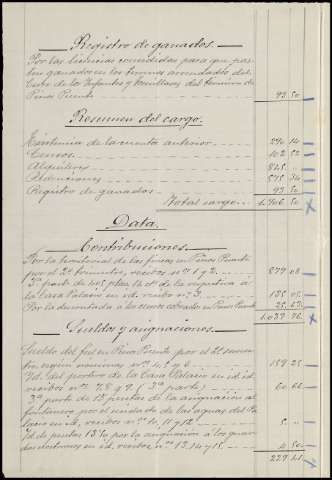 Registro de ganados.
Por las licencias concedidas para que pas-
ten ganados en los terrenos arrendados del
Coto de los Infantes y tomillares del término de
Pinos Puente 93 50
Resumen del cargo.
Existencia de la cuenta anterior 290 14
Censos 102 52
Alquileres 845
Redenciones 575 34
Registro de ganados 93 50
Total cargo 1.906 50
Data.
Contribuciones.
Por la territorial de las fincas en Pinos Puente
por el 2º trimestre, recibos nos 1 y 2 877 08
3ª parte de 405 ptas 14 cts de la respectiva a
la Casa Palacio en id. recibo nº 3 135 05
Por la descontada a los censos cobrados en Pinos Puente 25 63
1.037 76
Sueldos y asignaciones.
Sueldo del fiel en Pinos Puente por el 2º semes-
tre según nóminas nos 4, 5 y 6 159 25
Id. del portero de la Casa Palacio en id. id.
recibos nos 7, 8 y 9 (3ª parte) 60 66
3ª parte de 15 pesetas de la asignación al
fontanero por el cuidado de las aguas del Pa-
lacio en id, recibos nos 10, 11 y 12 5
Id de pesetas 13 50 por la asignación a los guar-
das nocturnos en id, recibos nos 13, 14 y 15 4 50
229 41